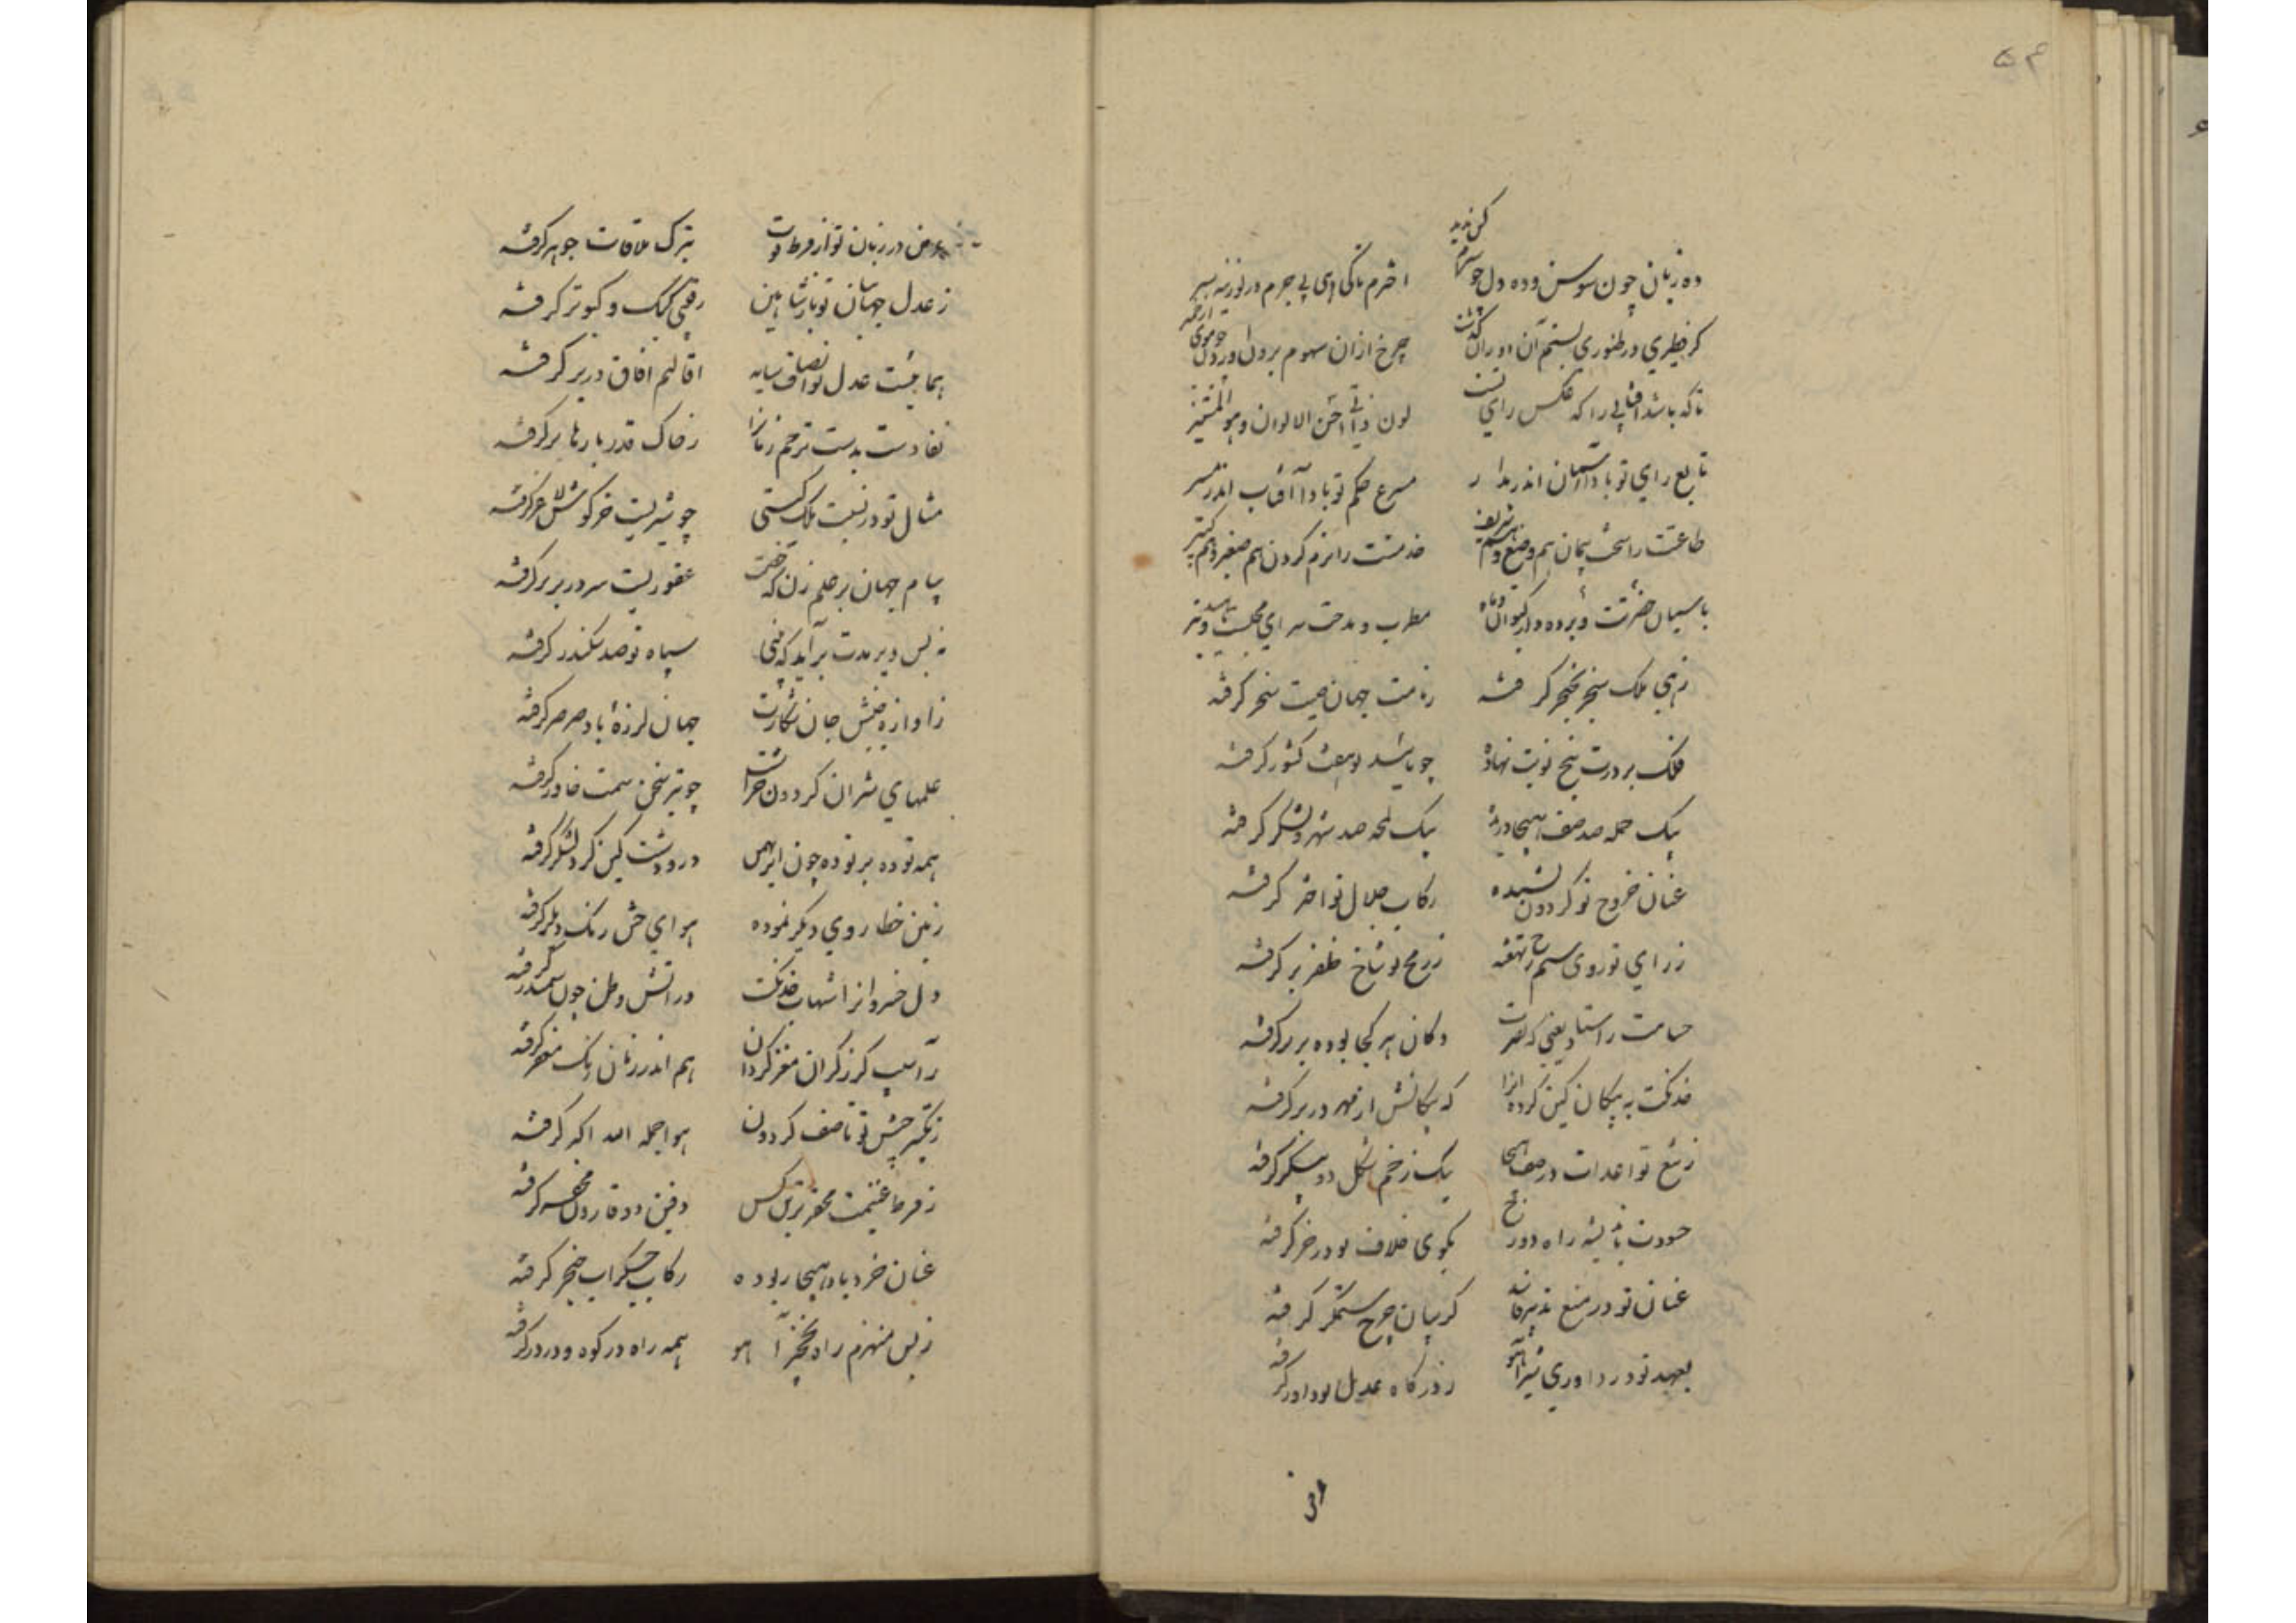 ده زبان چون سوسن و ده دل چو سیرم کس ندید
اخترم تا کی دهی بی جرم در لوزینه سیر
چرخ ازان سهوم بر دل
تا که باشد آفتابی را که عکس رای تست
لون ذاتی احسن الالوان و هو المستنیر
تابع رای تو بادا آسمان اندر مدار
مسرع حکم تو بادا آفتاب اندر مسیر
طاعتت را سخت پیمان هم وضیع و هم شریف
خدمتت را نرم گردن هم صغیر و هم کبیر
پاسبان حضرتت و پرده دار کیوان و ماه
مطرب و مدحت سرای مجلست ناهید و تیر
زهی ملک سنجر بخنجر گرفته
ز نامت جهان صیت سنجر گرفته
فلک بر درت پنج نوبت نهاده
چو باشد هفت کشور گرفته
بیک حمله صد صف هیجا دریده
بیک لمحه صد شهر و لشکر گرفته
عنان خروج تو گردون کشیده
رکاب جلال تو اختر گرفته
ز رای تو روی ستم رخ نهفته
ز رمح تو شاخ ظفر بر گرفته
حسامت
دکان هر کجا بوده بر در گرفته
خدنگت به پیکان کین کرده
که پیکانش از مهر در بر گرفته
ز تیغ تو اعدات در صف هیجا
بیک زخم شکل دو پیکر گرفته
حسودت باندیشه راه دوزخ
بکوی خلاف تو در خر گرفته
عنان تو در منع
گریبان چرخ ستمگر گرفته
بعهد تو در داوری شیر و آهو
ز درگاه عدل تو داور گرفته
عرض در زمان تو از فرط قوت
بترک ملاقات جوهر گرفته
ز عدل جهانبان تو باز و شاهین
رفیقی کبک و کبوتر گرفته
همائیست عدل تو انصاف سایه
اقالیم آفاق در پر گرفته
نفاذت بدست ترحم زمانرا
ز خاک قدر بارها بر گرفته
مثال تو در نسبت ملک گیتی
چو شیریست خرگوش لاغر گرفته
پیام جهان بر حلم زن که
سر در بر گرفته
نه بس دیر مدت بر آید که بینی
سپاه تو صد سکندر گرفته
ز آوازه جنبش جان شکارت
جهان لرزه باد صرصر گرفته
علمهای شیران گردون
چو تیر سخن سمت خاور گرفته
همه توده بر توده چون ابر بهمن
در و دشت کین گرد لشکر گرفته
زمین خطا روی دیگر نموده
هوای حبش رنگ دیگر گرفته
دل خسروانرا شهاب خدنگت
در آتش وطن چون سمندر گرفته
ز آسیب گرز گران مغز گردان
هم اندر زمان رنگ مغفر گرفته
ز تکبیر جیش تو تا صف گردون
هوا جمله الله اکبر گرفته
ز فر ما غنیمت محقرترین کس
دفین دو قارون محقر گرفته
عنان خرد باد هیجا ربوده
رکاب جگر آب خنجر گرفته
ز بس منهزم راه نخچیر آهو
همه راه در کوه و در در گرفته